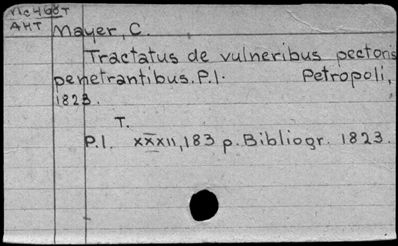 Nc468T
AHT Mayer, C.
Tractatus de vulneribus pectoris
penetrantibus. P.I. Petropoli,
1823.
T.
P.I. XXXII, 183 p. Bibliogr. 1823.